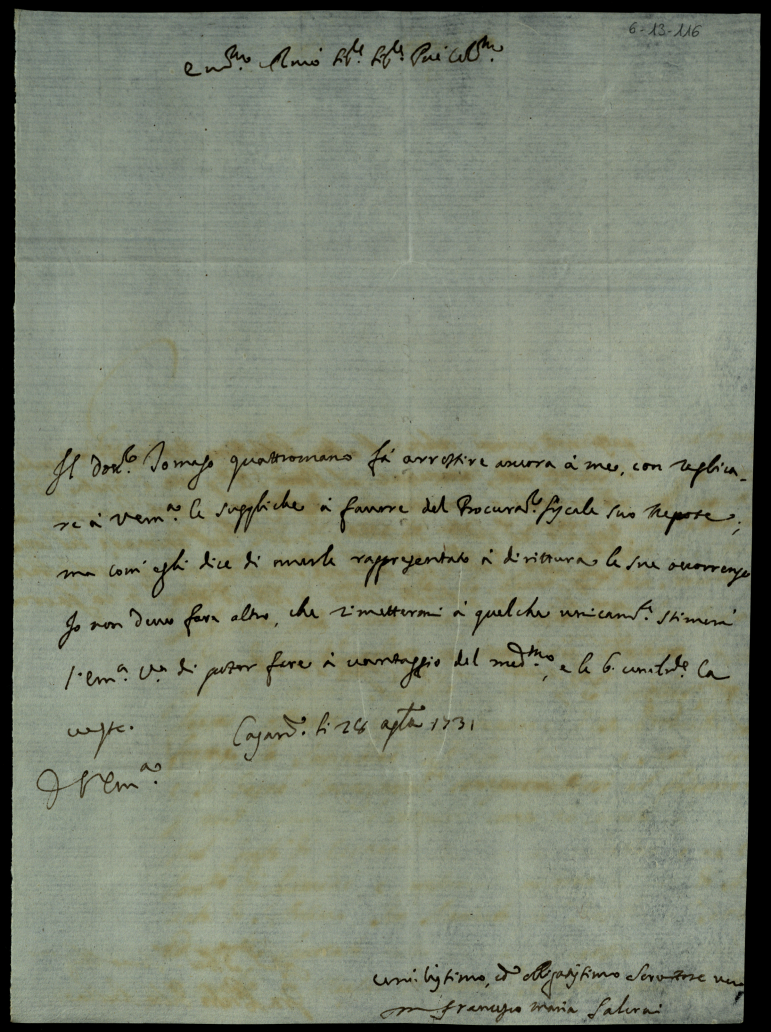 6-13-116
Em.mo Rmo Sig.re Sig.re Pne Col.mo
Il Dott.re Tomaso Quattromano fà arrossire ancora à me, con replica-
re à V Em.a le suppliche à favore del Procurat.re fiscale suo Nepote;
ma com' egli dice di haverle rappresentato à dirittura le sue occorrenze
Io non devo fare altro, che rimettermi à quel che unicam.te stimerà
l'Em.a V.a di poter fare à vantaggio del med.mo, e le b. umilm.te la
veste. li 28 agto 1731
D V Em.a
umilissimo, ed obligatissimo Servitore vero
Francesco Maria Salerni